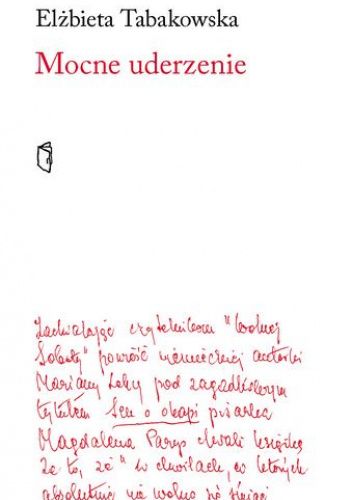 Elżbieta Tabakowska
Mocne uderzenie
Zachwalając czytelnikom "Wolnej
Soboty" powieść niemieckiej autorki
Mariany Leky pod zagadkowym
tytułem Sen o okapi pisarka
Magdalena Parys chwali książkę
za to, że "w chwilach, w których
absolutnie nie wolno się śmiać